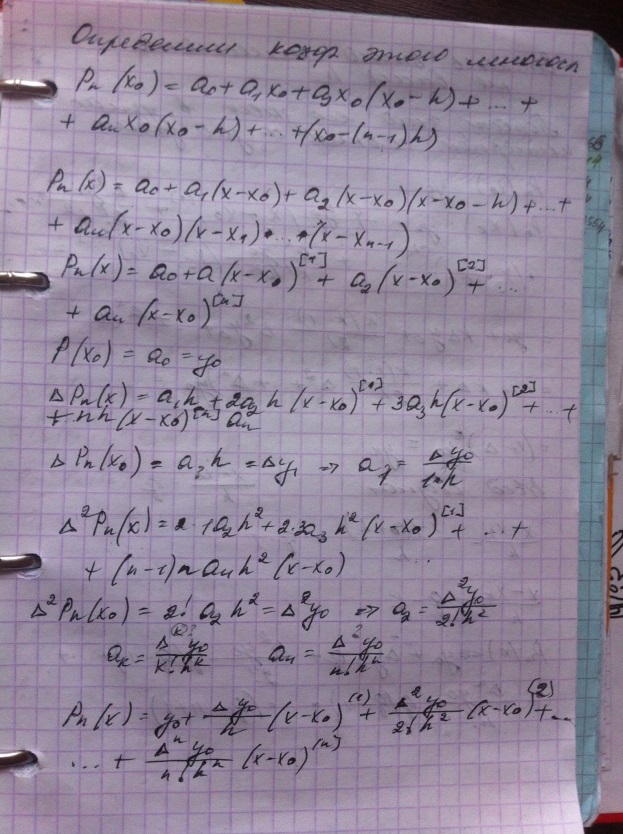 Определим коэф этого многочл
Pn(x0) = a0 + a1x0 + a3x0(x0-h) + ... +
+ anx0(x0-h) + ... + (x0-(n-1)h)
Pn(x) = a0 + a1(x-x0) + a2(x-x0)(x-x0-h) + ... +
+ an(x-x0)(x-x1)· ... ·(x-xn-1)
Pn(x) = a0 + a(x-x0)^[1] + a2(x-x0)^[2] + ...
+ an(x-x0)^[n]
P(x0) = a0 = y0
ΔPn(x) = a1h + 2a2h(x-x0)^[1] + 3a3h(x-x0)^[2] + ... +
+ nh(x-x0)^[n] an
ΔPn(x0) = a1h = Δy1 ⇒ a1 = Δy0/1·h
Δ²Pn(x) = 2·1a2h² + 2·3a3h²(x-x0)^[1] + ... +
+ (n-1)n anh²(x-x0)
Δ²Pn(x0) = 2! a2h² = Δ²y0 ⇒ a2 = Δ²y0/2!h²
ak = Δ^(k)y0/k!h^k an = Δ^?y0/n!h^n
Pn(x) = y0 + Δy0/h (x-x0)^(1) + Δ²y0/2!h² (x-x0)^(2) + ...
... + Δ^n y0/n!h^n (x-x0)^[n]